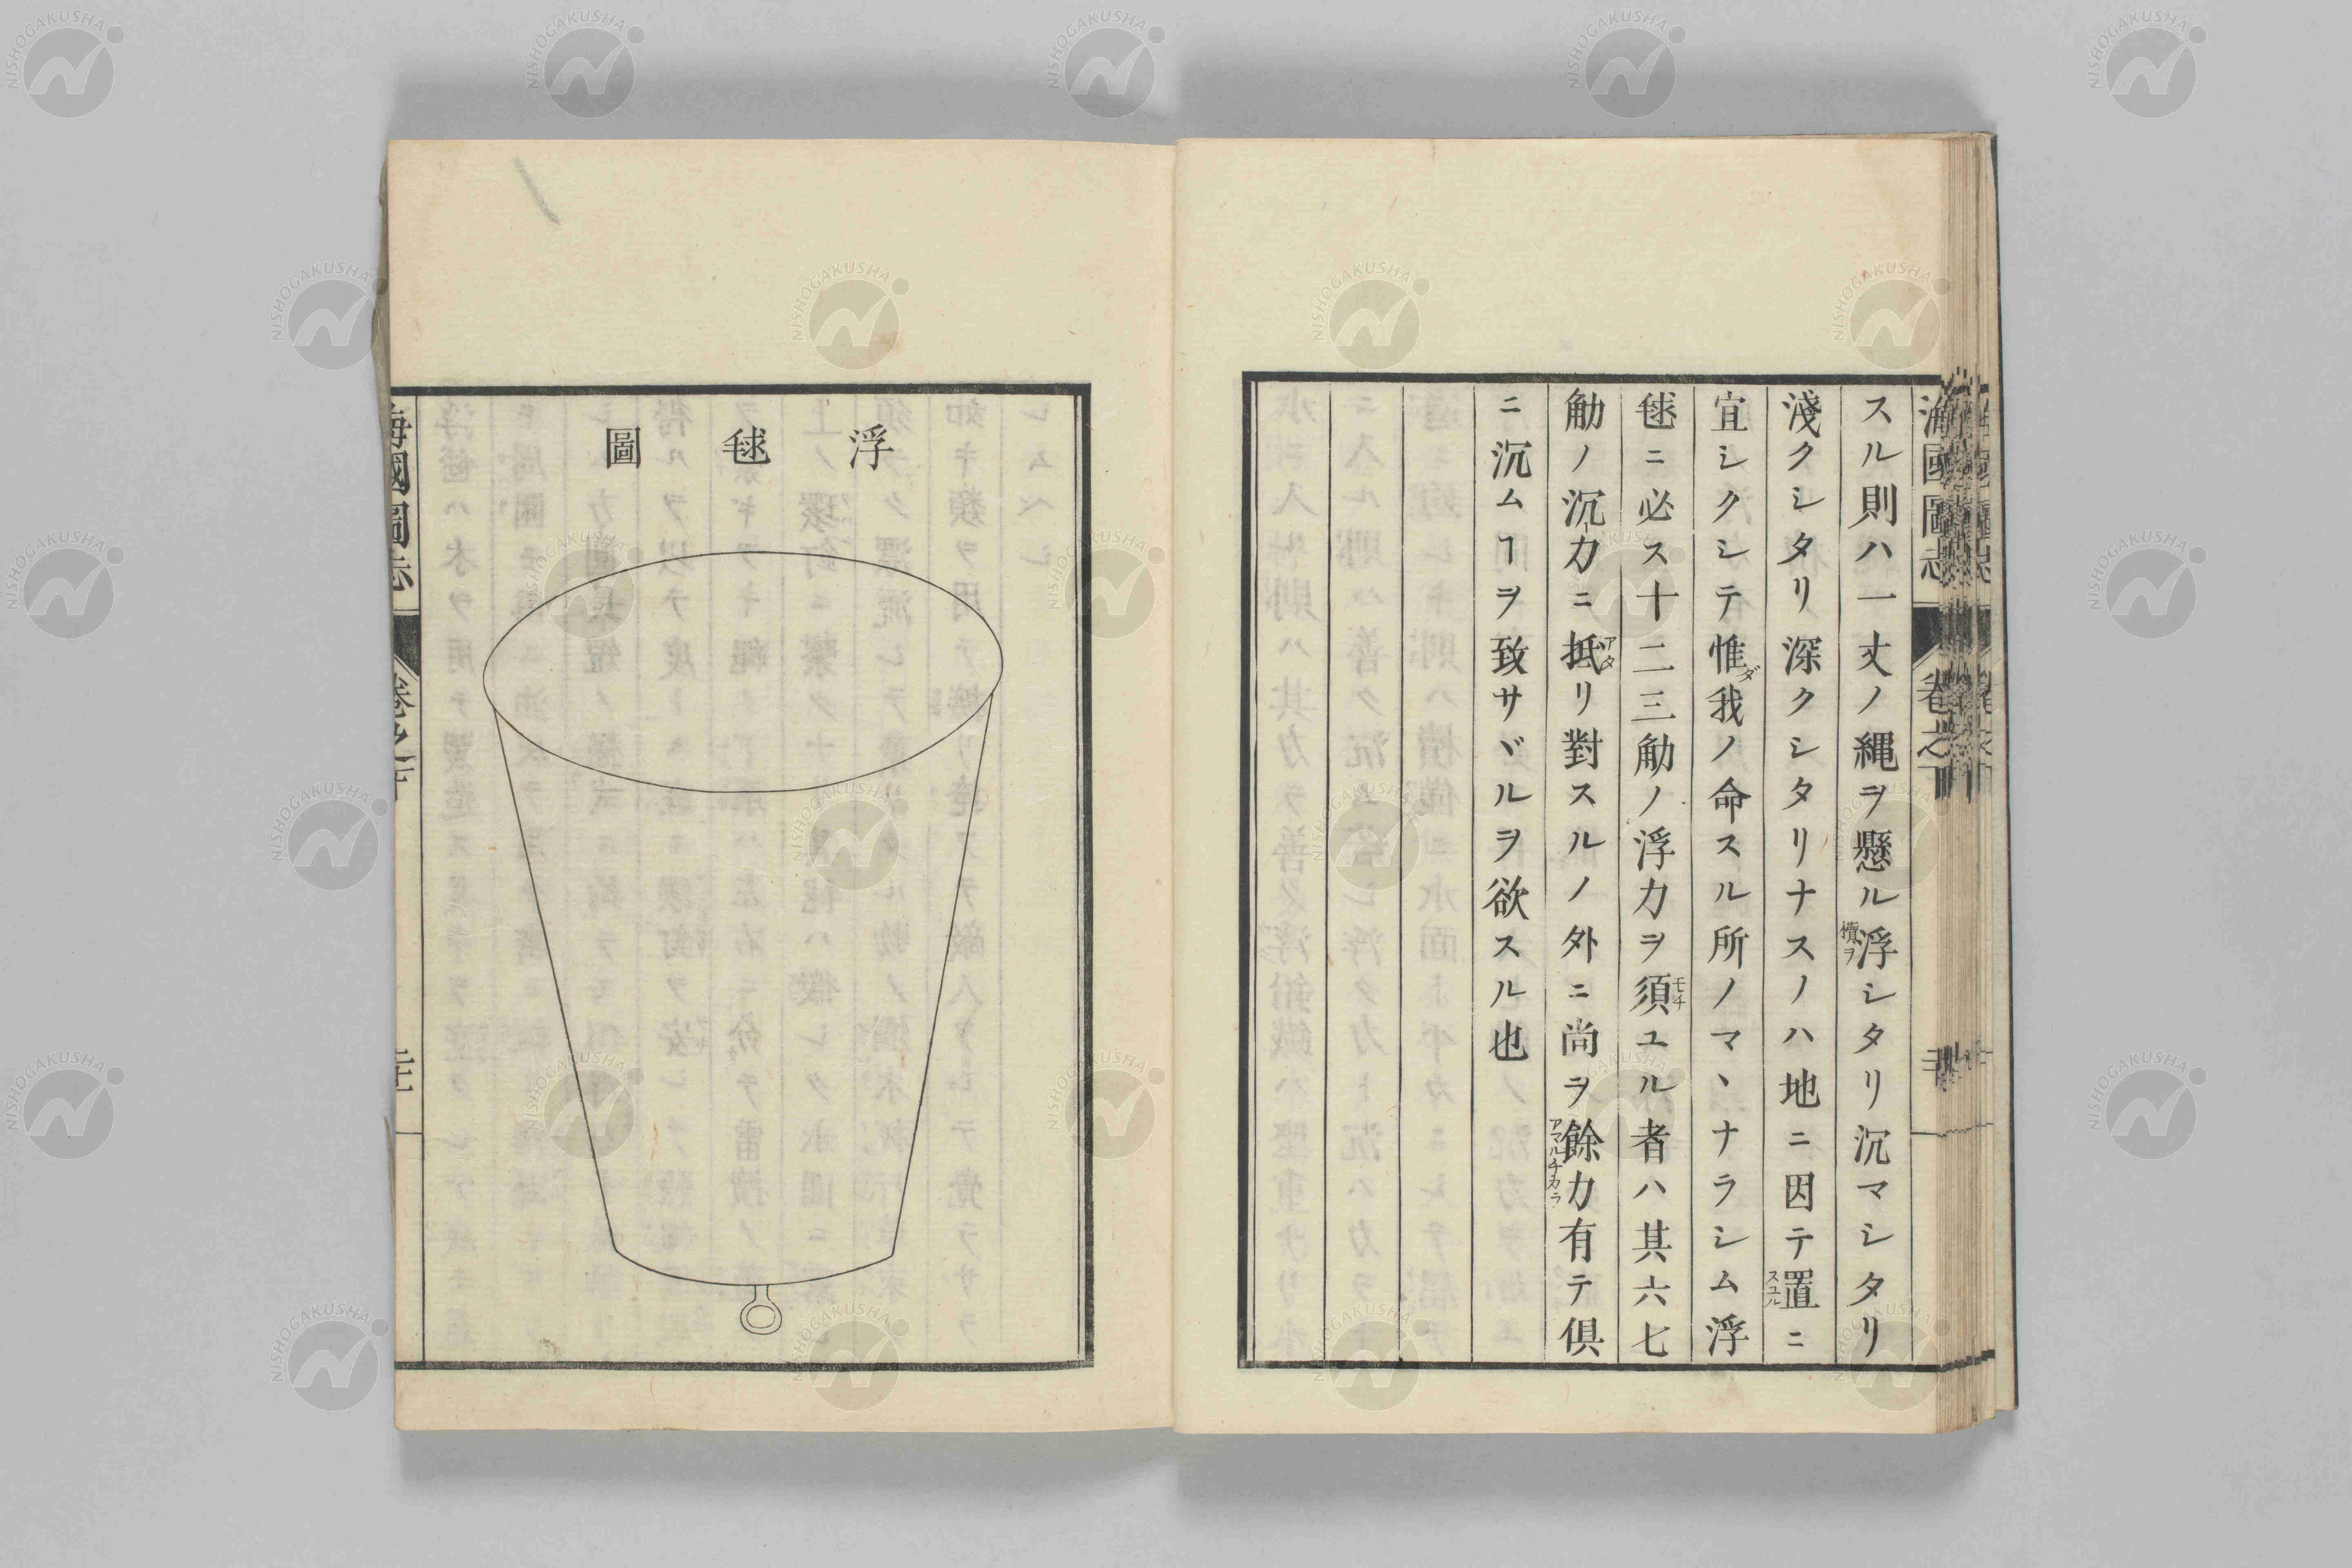 スル則ハ一丈ノ縄ヲ懸ル浮シタリ沉マシタリ
攬ヲ
淺クシタリ深クシタリナスノハ地ニ因テ置ニ
スユル
宜シクシテ惟我ノ命スル所ノマヽナラシム浮
ダ
毬ニ必ス十二三觔ノ浮力ヲ須ユル者ハ其六七
モチ
觔ノ沉力ニ抵リ對スルノ外ニ尚ヲ餘力有テ俱
アタ
アマルチカラ
ニ沉ムヿヲ致サヾルヲ欲スル也
海國圖志
卷之
浮毬圖
海國圖志
卷之
NISHOGAKUSHA